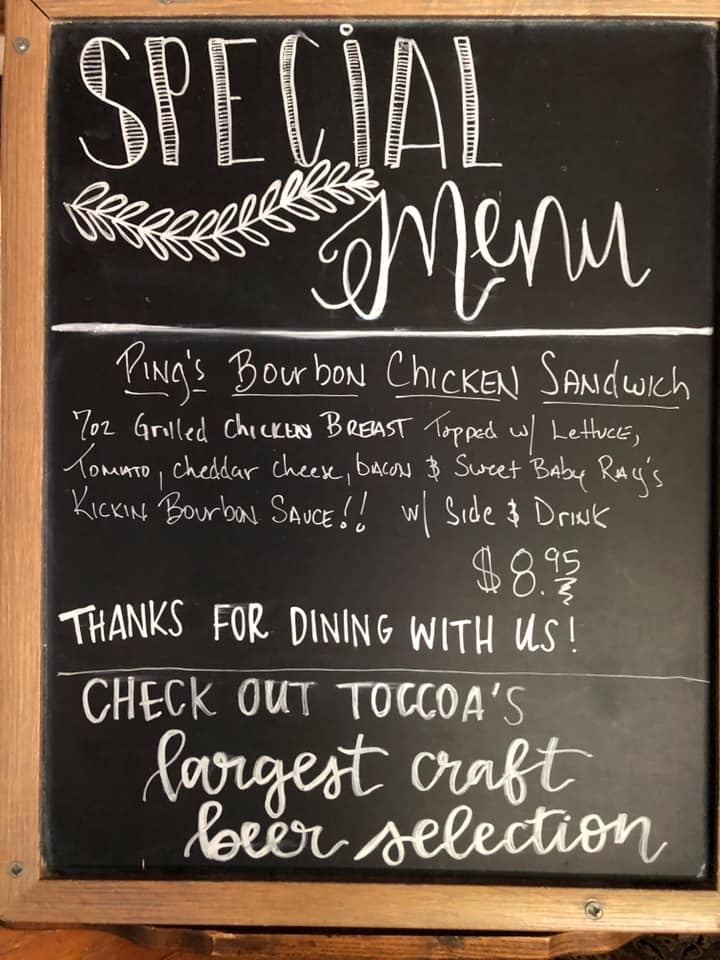 SPECiAL
Menu
Ping's Bourbon Chicken Sandwich
7oz Grilled Chicken Breast Topped w/ Lettuce,
Tomato, cheddar cheese, bacon & Sweet Baby Ray's
Kickin Bourbon Sauce!! w/ Side & Drink
$8.95
THANKS FOR DINING WITH US!
CHECK OUT TOCCOA'S
largest craft
beer selection